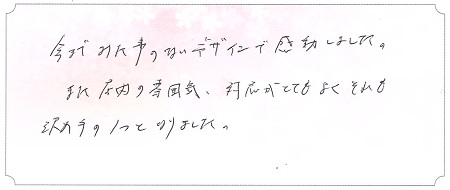 今まてみた事のないデザインで感動しました。
また店内の雰囲気、対応がとてもよくそれも
決め手の1つとなりました。